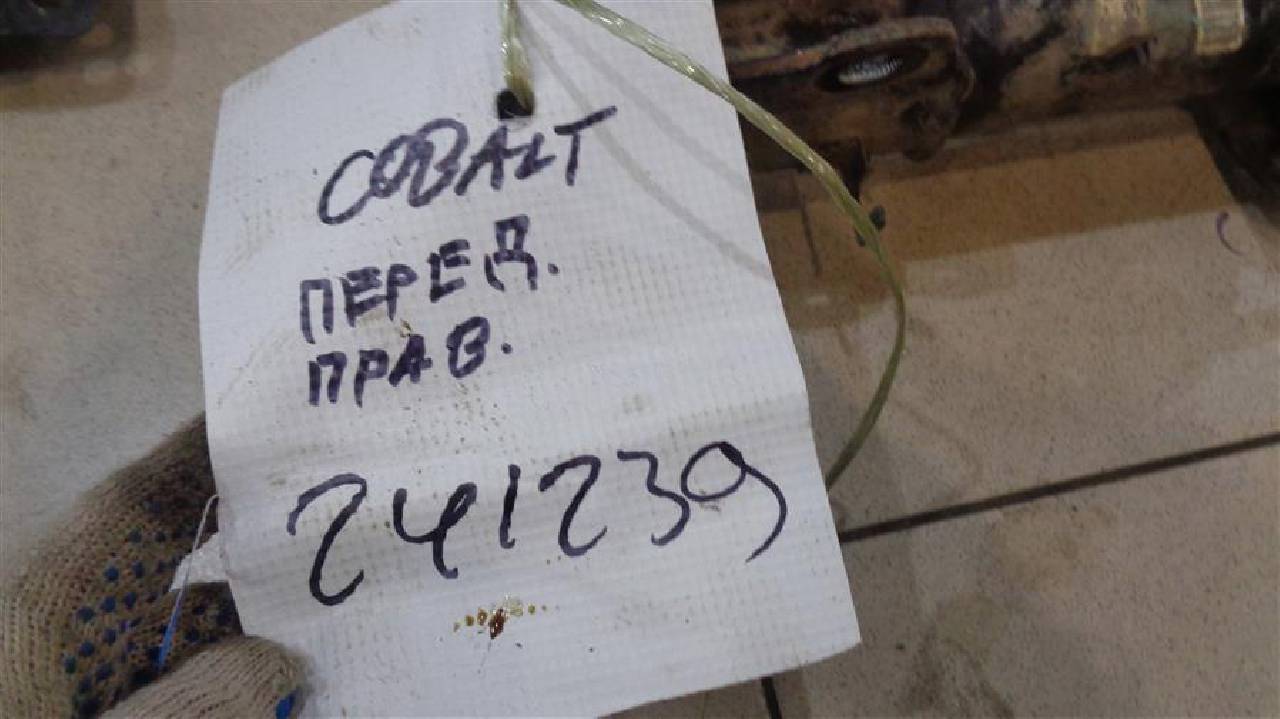 COBALT
ПЕРЕД.
ПРАВ.
241239